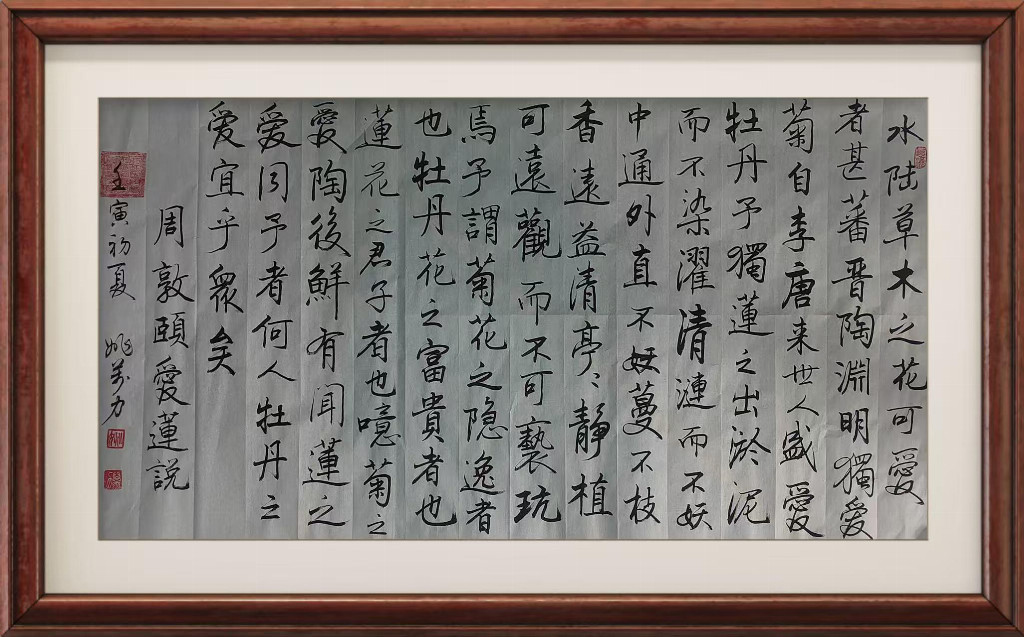 水陆草木之花可愛
者甚蕃晋陶淵明獨爱
菊自李唐来世人盛愛
牡丹予獨蓮之出淤泥
而不染濯清漣而不妖
中通外直不妖蔓不枝
香遠益清亭〻静植
可遠觀而不可褻玩
焉予謂菊花之隐逸者
也牡丹花之富貴者也
蓮花之君子者也噫菊之
愛陶後鮮有闻蓮之
爱同予者何人牡丹之
爱宜乎眾矣
周敦頤愛蓮説
壬寅初夏 姚